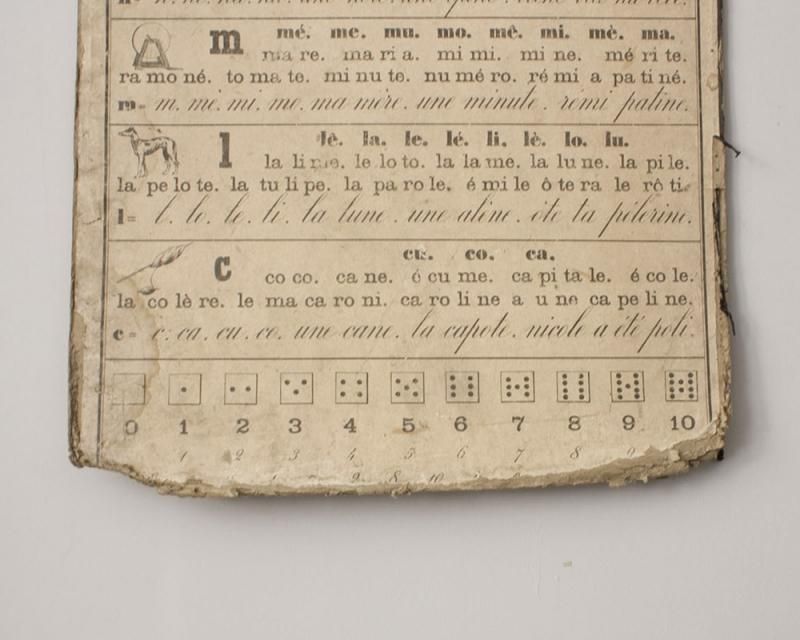 mé. me. mu. mo. mê. mi. mè. ma.
m ma re. ma ri a. mi mi. mi ne. mé ri te.
ra mo né. to ma te. mi nu te. nu mé ro. ré mi a pa ti né.
m= m. mé. mi. mo. ma mère. une minute. rémi patine.
lê. la. le. lé. li. lè. lo. lu.
l la li me. le lo to. la la me. la lu ne. la pi le.
la pe lo te. la tu li pe. la pa ro le. é mi le ô te ra le rô ti.
l= l. lo. le. li. la lune. une aline. ôte ta pèlerine.
cu. co. ca.
c co co. ca ne. é cu me. ca pi ta le. é co le.
la co lè re. le ma ca ro ni. ca ro li ne a u ne ca pe li ne.
c= c. ca. cu. co. une cane. la capote. nicole a été poli.
0 1 2 3 4 5 6 7 8 9 10
1 2 3 4 5 6 7 8 9